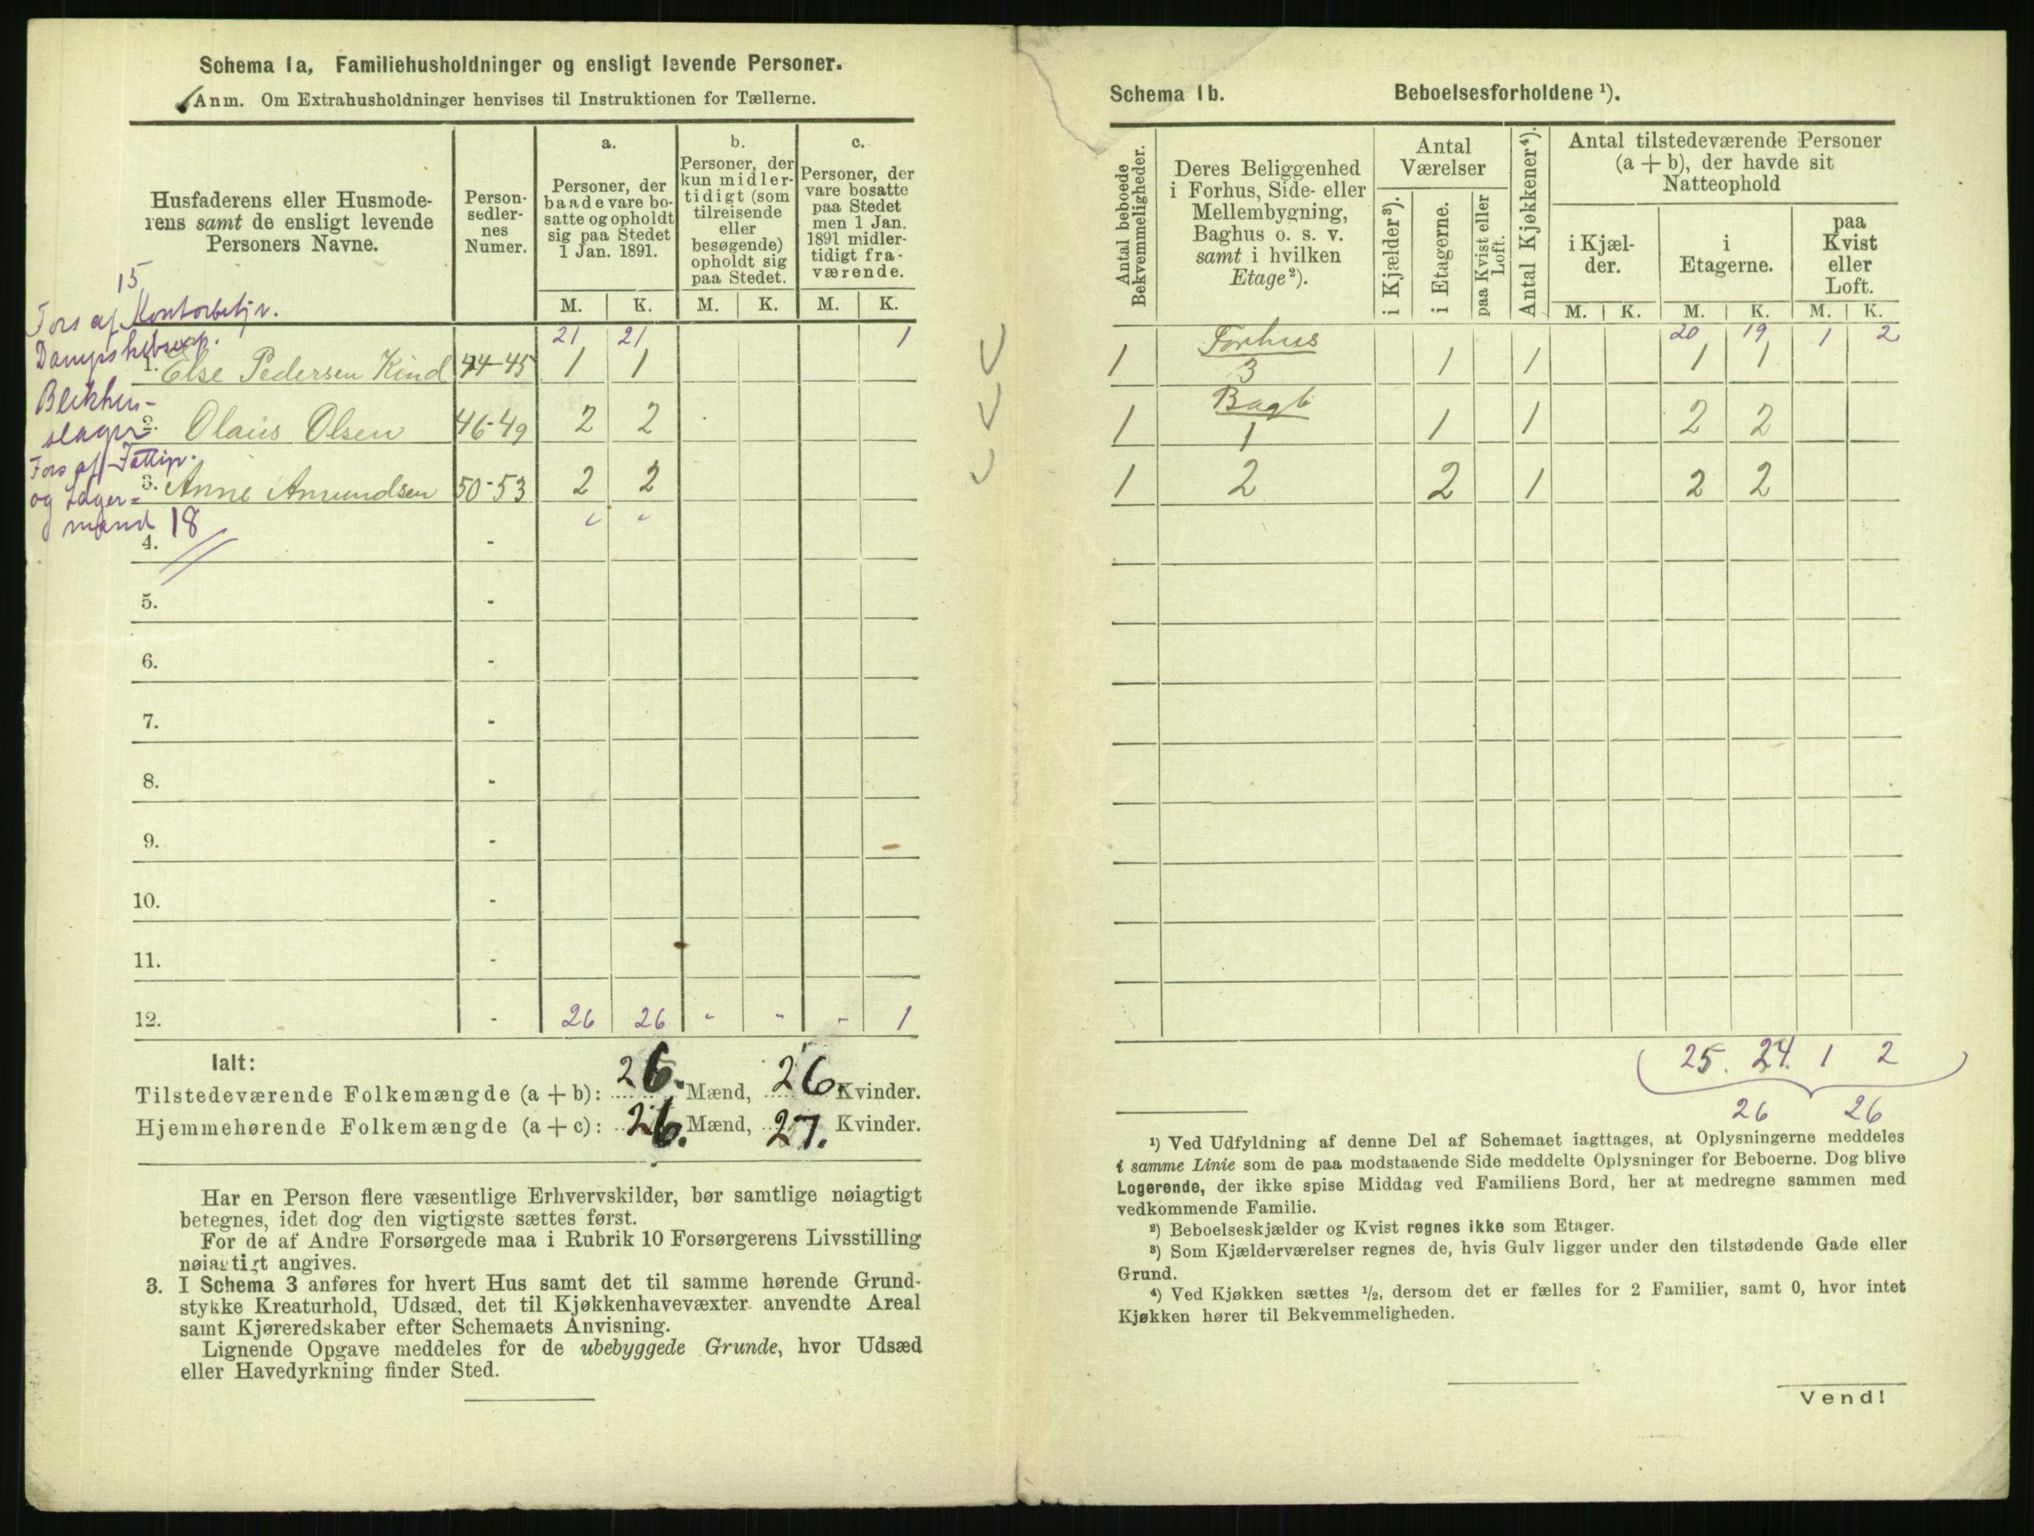 Schema 1a, Familiehusholdninger og ensligt levende Personer.
Anm. Om Extrahusholdninger henvises til Instruktionen for Tællerne.
Husfaderens eller Husmoderens samt de ensligt levende Personers Navne.
Personsedlernes Numer.
a. Personer, der baade vare bosatte og opholdt sig paa Stedet 1 Jan. 1891.
b. Personer, der kun midlertidigt (som tilreisende eller besøgende) opholdt sig paa Stedet.
c. Personer, der vare bosatte paa Stedet men 1 Jan. 1891 midlertidigt fraværende.
M. K. M. K. M. K.
15
Fors af Kontorbetjr.
21 21 1
1. Else Pedersen Kind 44-45 1 1
Blikken-
slager
2. Olaus Olsen 46-49 2 2
Fors af Fattigv.
og Lager-
mand 18
3. Anne Amundsen 50-53 2 2
4. -
5. -
6. -
7. -
8. -
9. -
10. -
11. -
12. - 26 26 - - - 1
Ialt:
Tilstedeværende Folkemængde (a + b): 26. Mænd, 26. Kvinder.
Hjemmehørende Folkemængde (a + c): 26. Mænd, 27. Kvinder.
Har en Person flere væsentlige Erhvervskilder, bør samtlige nøiagtigt
betegnes, idet dog den vigtigste sættes først.
For de af Andre Forsørgede maa i Rubrik 10 Forsørgerens Livsstilling
nøiagtigt angives.
3. I Schema 3 anføres for hvert Hus samt det til samme hørende Grund-
stykke Kreaturhold, Udsæd, det til Kjøkkenhavevæxter anvendte Areal
samt Kjøreredskaber efter Schemaets Anvisning.
Lignende Opgave meddeles for de ubebyggede Grunde, hvor Udsæd
eller Havedyrkning finder Sted.
Schema 1b. Beboelsesforholdene ¹).
Antal beboede Bekvemmeligheder.
Deres Beliggenhed i Forhus, Side- eller Mellembygning, Baghus o. s. v. samt i hvilken Etage²).
Antal Værelser
i Kjælder³).
i Etagerne.
paa Kvist eller Loft.
Antal Kjøkkener⁴).
Antal tilstedeværende Personer (a + b), der havde sit Natteophold
i Kjælder.
i Etagerne.
paa Kvist eller Loft.
M. K. M. K. M. K.
Forhus 20 19 1 2
1 3 1 1 1 1
Bagb
1 1 1 1 2 2
1 2 2 1 2 2
25. 24. 1 2
26 26
¹) Ved Udfyldning af denne Del af Schemaet iagttages, at Oplysningerne meddeles
i samme Linie som de paa modstaaende Side meddelte Oplysninger for Beboerne. Dog blive
Logerende, der ikke spise Middag ved Familiens Bord, her at medregne sammen med
vedkommende Familie.
²) Beboelseskjælder og Kvist regnes ikke som Etager.
³) Som Kjælderværelser regnes de, hvis Gulv ligger under den tilstødende Gade eller
Grund.
⁴) Ved Kjøkken sættes ½, dersom det er fælles for 2 Familier, samt 0, hvor intet
Kjøkken hører til Bekvemmeligheden.
Vend!